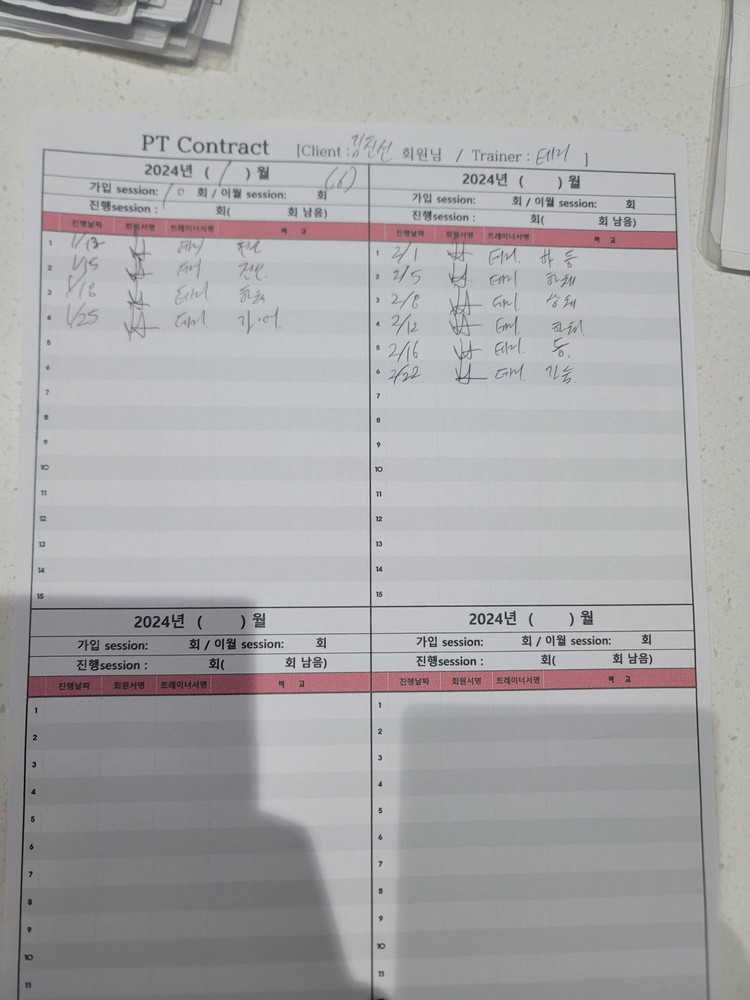 PT Contract [Client : 김진선 회원님 / Trainer : 테리 ]
2024년 ( 1 ) 월 (6)
가입 session: 10 회 / 이월 session: 회
진행session : 회( 회 남음)
진행날짜 회원서명 트레이너서명 비 고
1 1/13 테리 전신
2 1/15 테리 전신.
3 1/18 테리 하체
4 1/25 테리 가·어.
5
6
7
8
9
10
11
12
13
14
15
2024년 ( ) 월
가입 session: 회 / 이월 session: 회
진행session : 회( 회 남음)
진행날짜 회원서명 트레이너서명 비 고
1 2/1 테리. 등
2 2/5 테리. 하체
3 2/8 테리. 상체
4 2/12 테리. 하체.
5 2/16 테리. 등.
6 2/22 테리. 가슴.
7
8
9
10
11
12
13
14
15
2024년 ( ) 월
가입 session: 회 / 이월 session: 회
진행session : 회( 회 남음)
진행날짜 회원서명 트레이너서명 비 고
1
2
3
4
5
6
7
8
9
10
11
2024년 ( ) 월
가입 session: 회 / 이월 session: 회
진행session : 회( 회 남음)
진행날짜 회원서명 트레이너서명 비 고
1
2
3
4
5
6
7
8
9
10
11